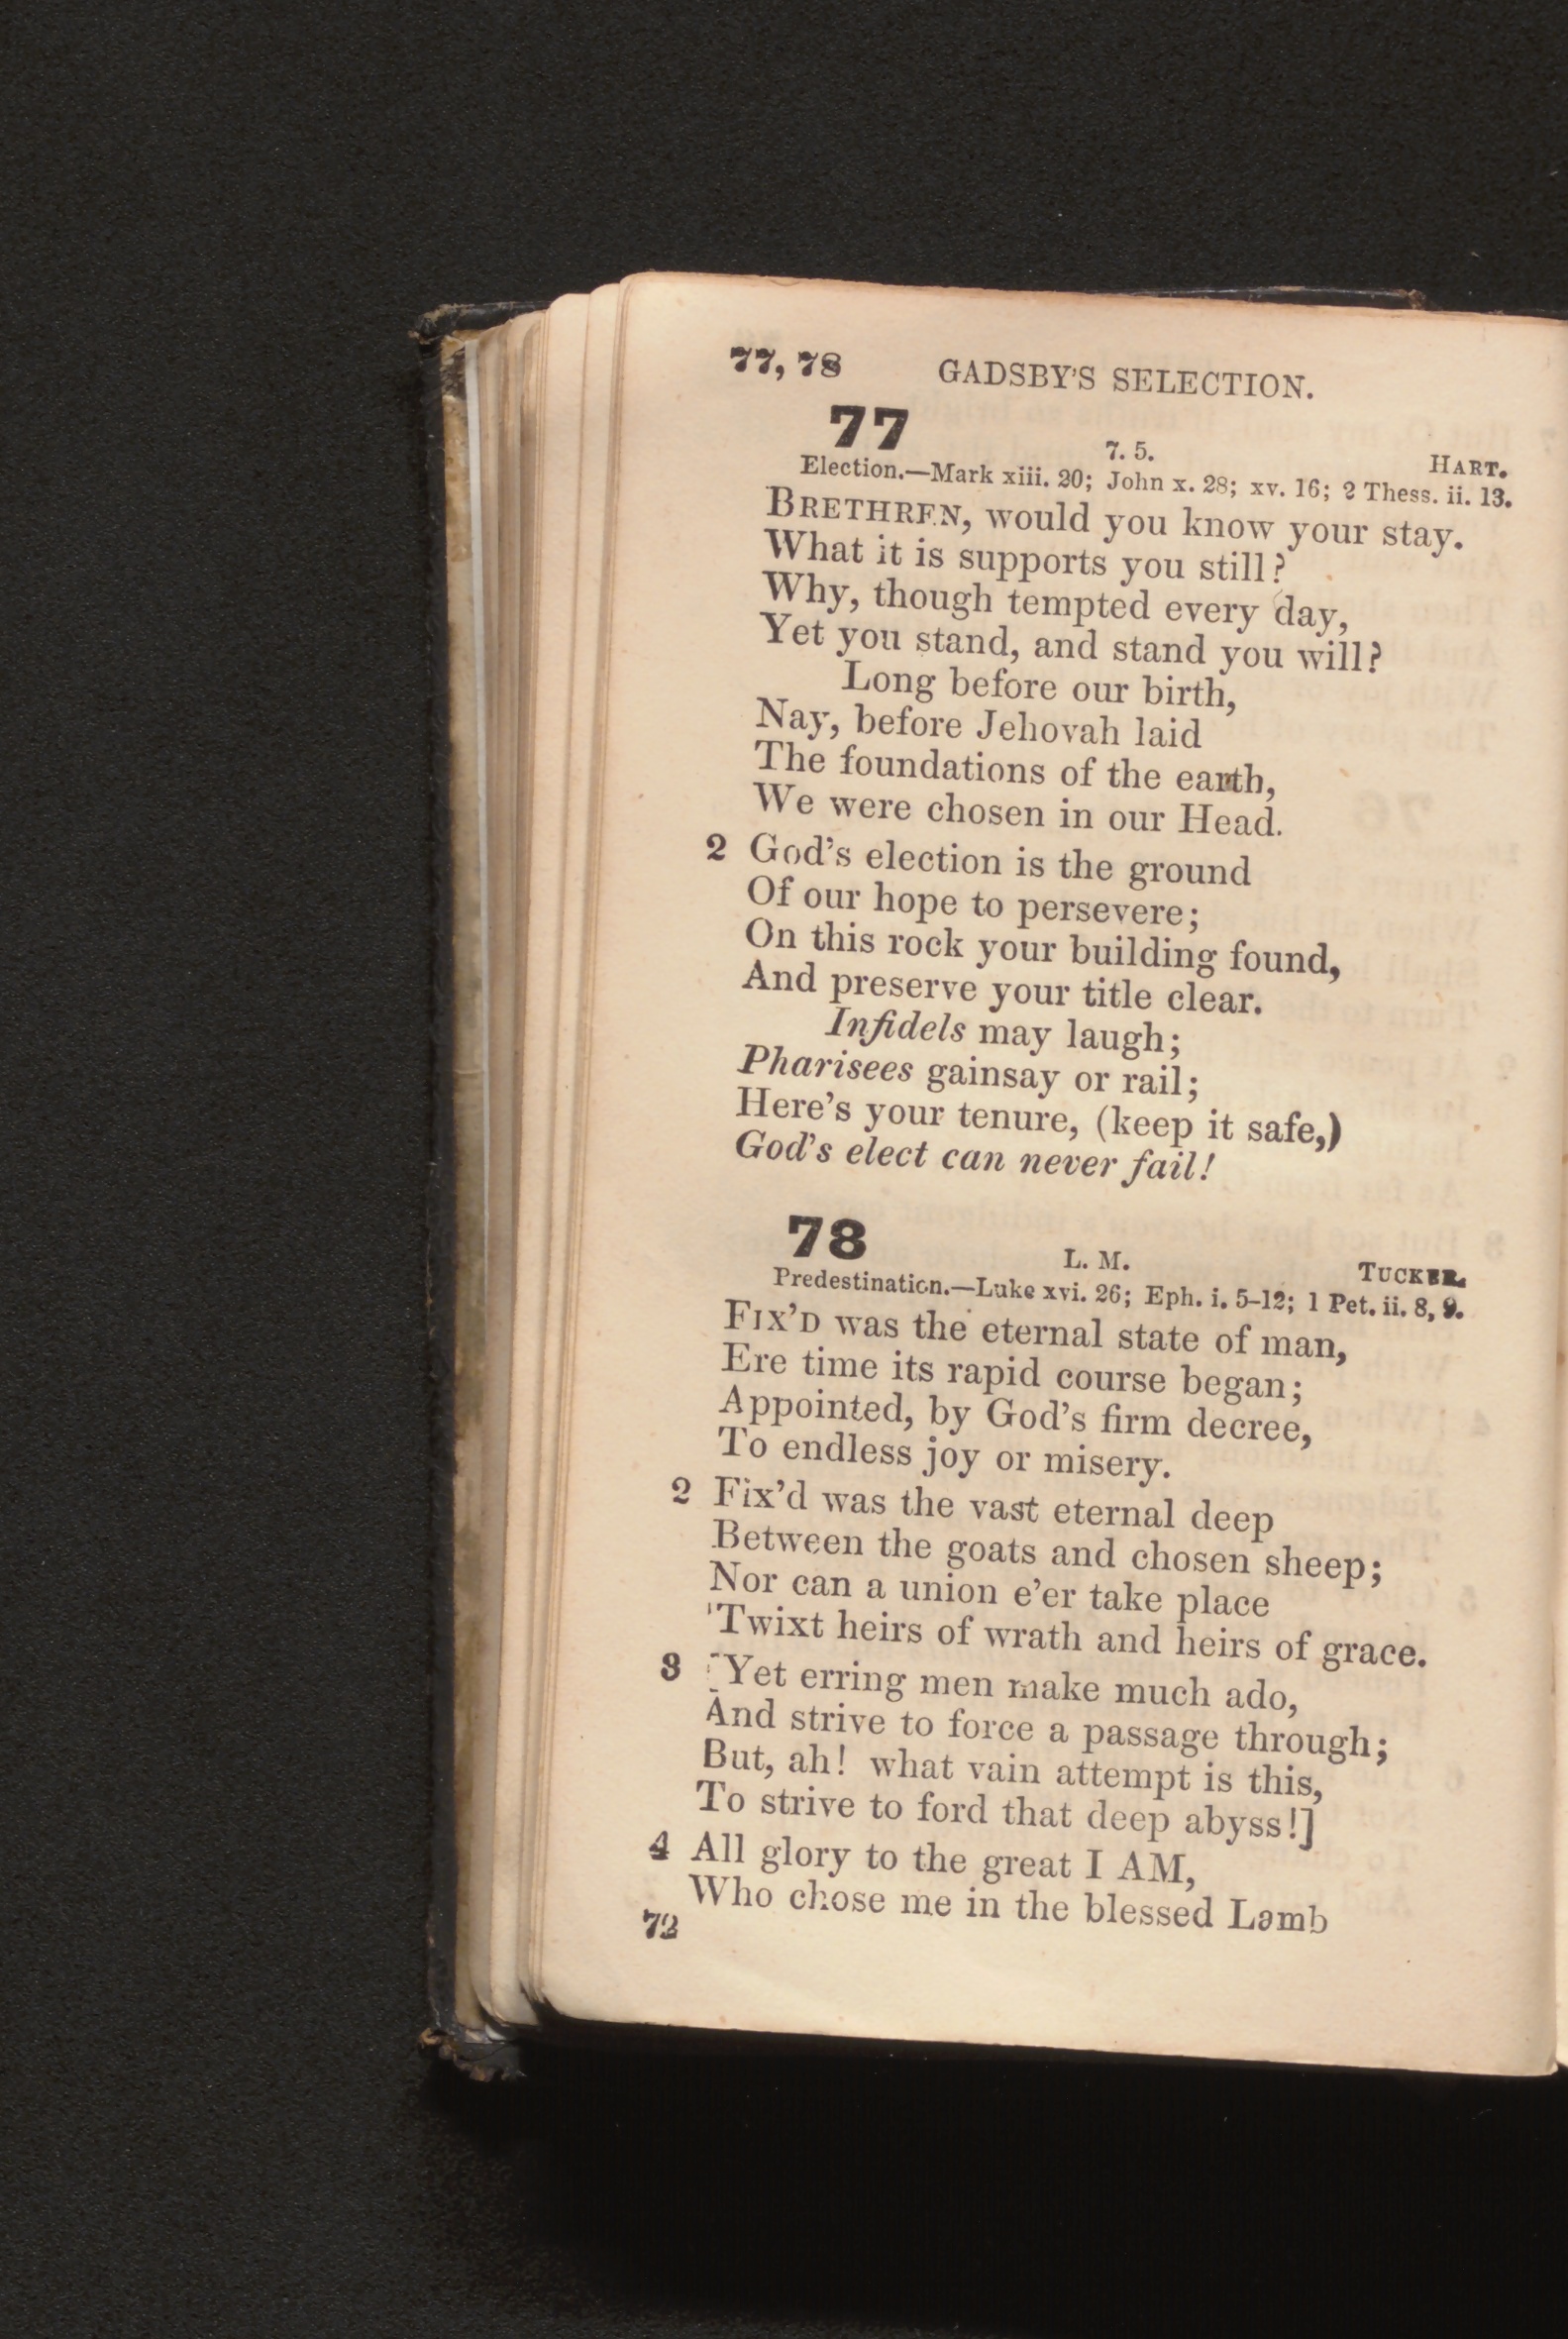 77, 78 GADSBY'S SELECTION.
77 7. 5. HART.
Election.—Mark xiii. 20; John x. 28; xv. 16; 2 Thess. ii. 13.
BRETHREN, would you know your stay.
What it is supports you still?
Why, though tempted every day,
Yet you stand, and stand you will?
Long before our birth,
Nay, before Jehovah laid
The foundations of the earth,
We were chosen in our Head.
2 God's election is the ground
Of our hope to persevere;
On this rock your building found,
And preserve your title clear.
Infidels may laugh;
Pharisees gainsay or rail;
Here's your tenure, (keep it safe,)
God's elect can never fail!
78 L. M. TUCKER.
Predestination.—Luke xvi. 26; Eph. i. 5-12; 1 Pet. ii. 8, 9.
FIX'D was the eternal state of man,
Ere time its rapid course began;
Appointed, by God's firm decree,
To endless joy or misery.
2 Fix'd was the vast eternal deep
Between the goats and chosen sheep;
Nor can a union e'er take place
'Twixt heirs of wrath and heirs of grace.
3 [Yet erring men make much ado,
And strive to force a passage through;
But, ah! what vain attempt is this,
To strive to ford that deep abyss!]
4 All glory to the great I AM,
Who chose me in the blessed Lamb
72